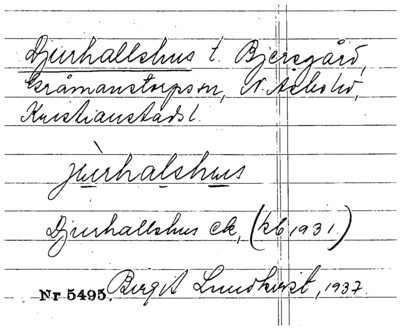 Djurhallshus t. Bjersgård,
Gråmanstorps sn, N. Åsbo hd,
Kristianstads l.
jùrhalshus
Djurhallshus ek, (kb 1931.)
Nr 5495. Birgit Lundkvist, 1937.